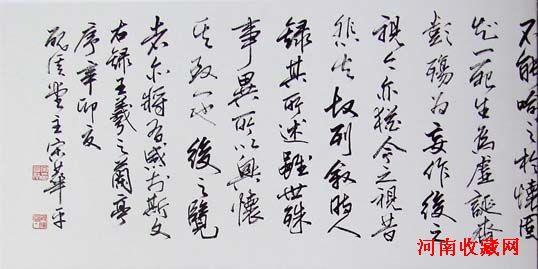 不能喻之於懷固
知一死生為虛誕齊
彭殤為妄作後之
視今亦猶今之視昔
悲夫故列敘時人
錄其所述雖世殊
事異所以興懷
其致一也後之覽
者亦將有感於斯文
右錄王羲之蘭亭
序辛卯夏
堂主宗華平
河南收藏网